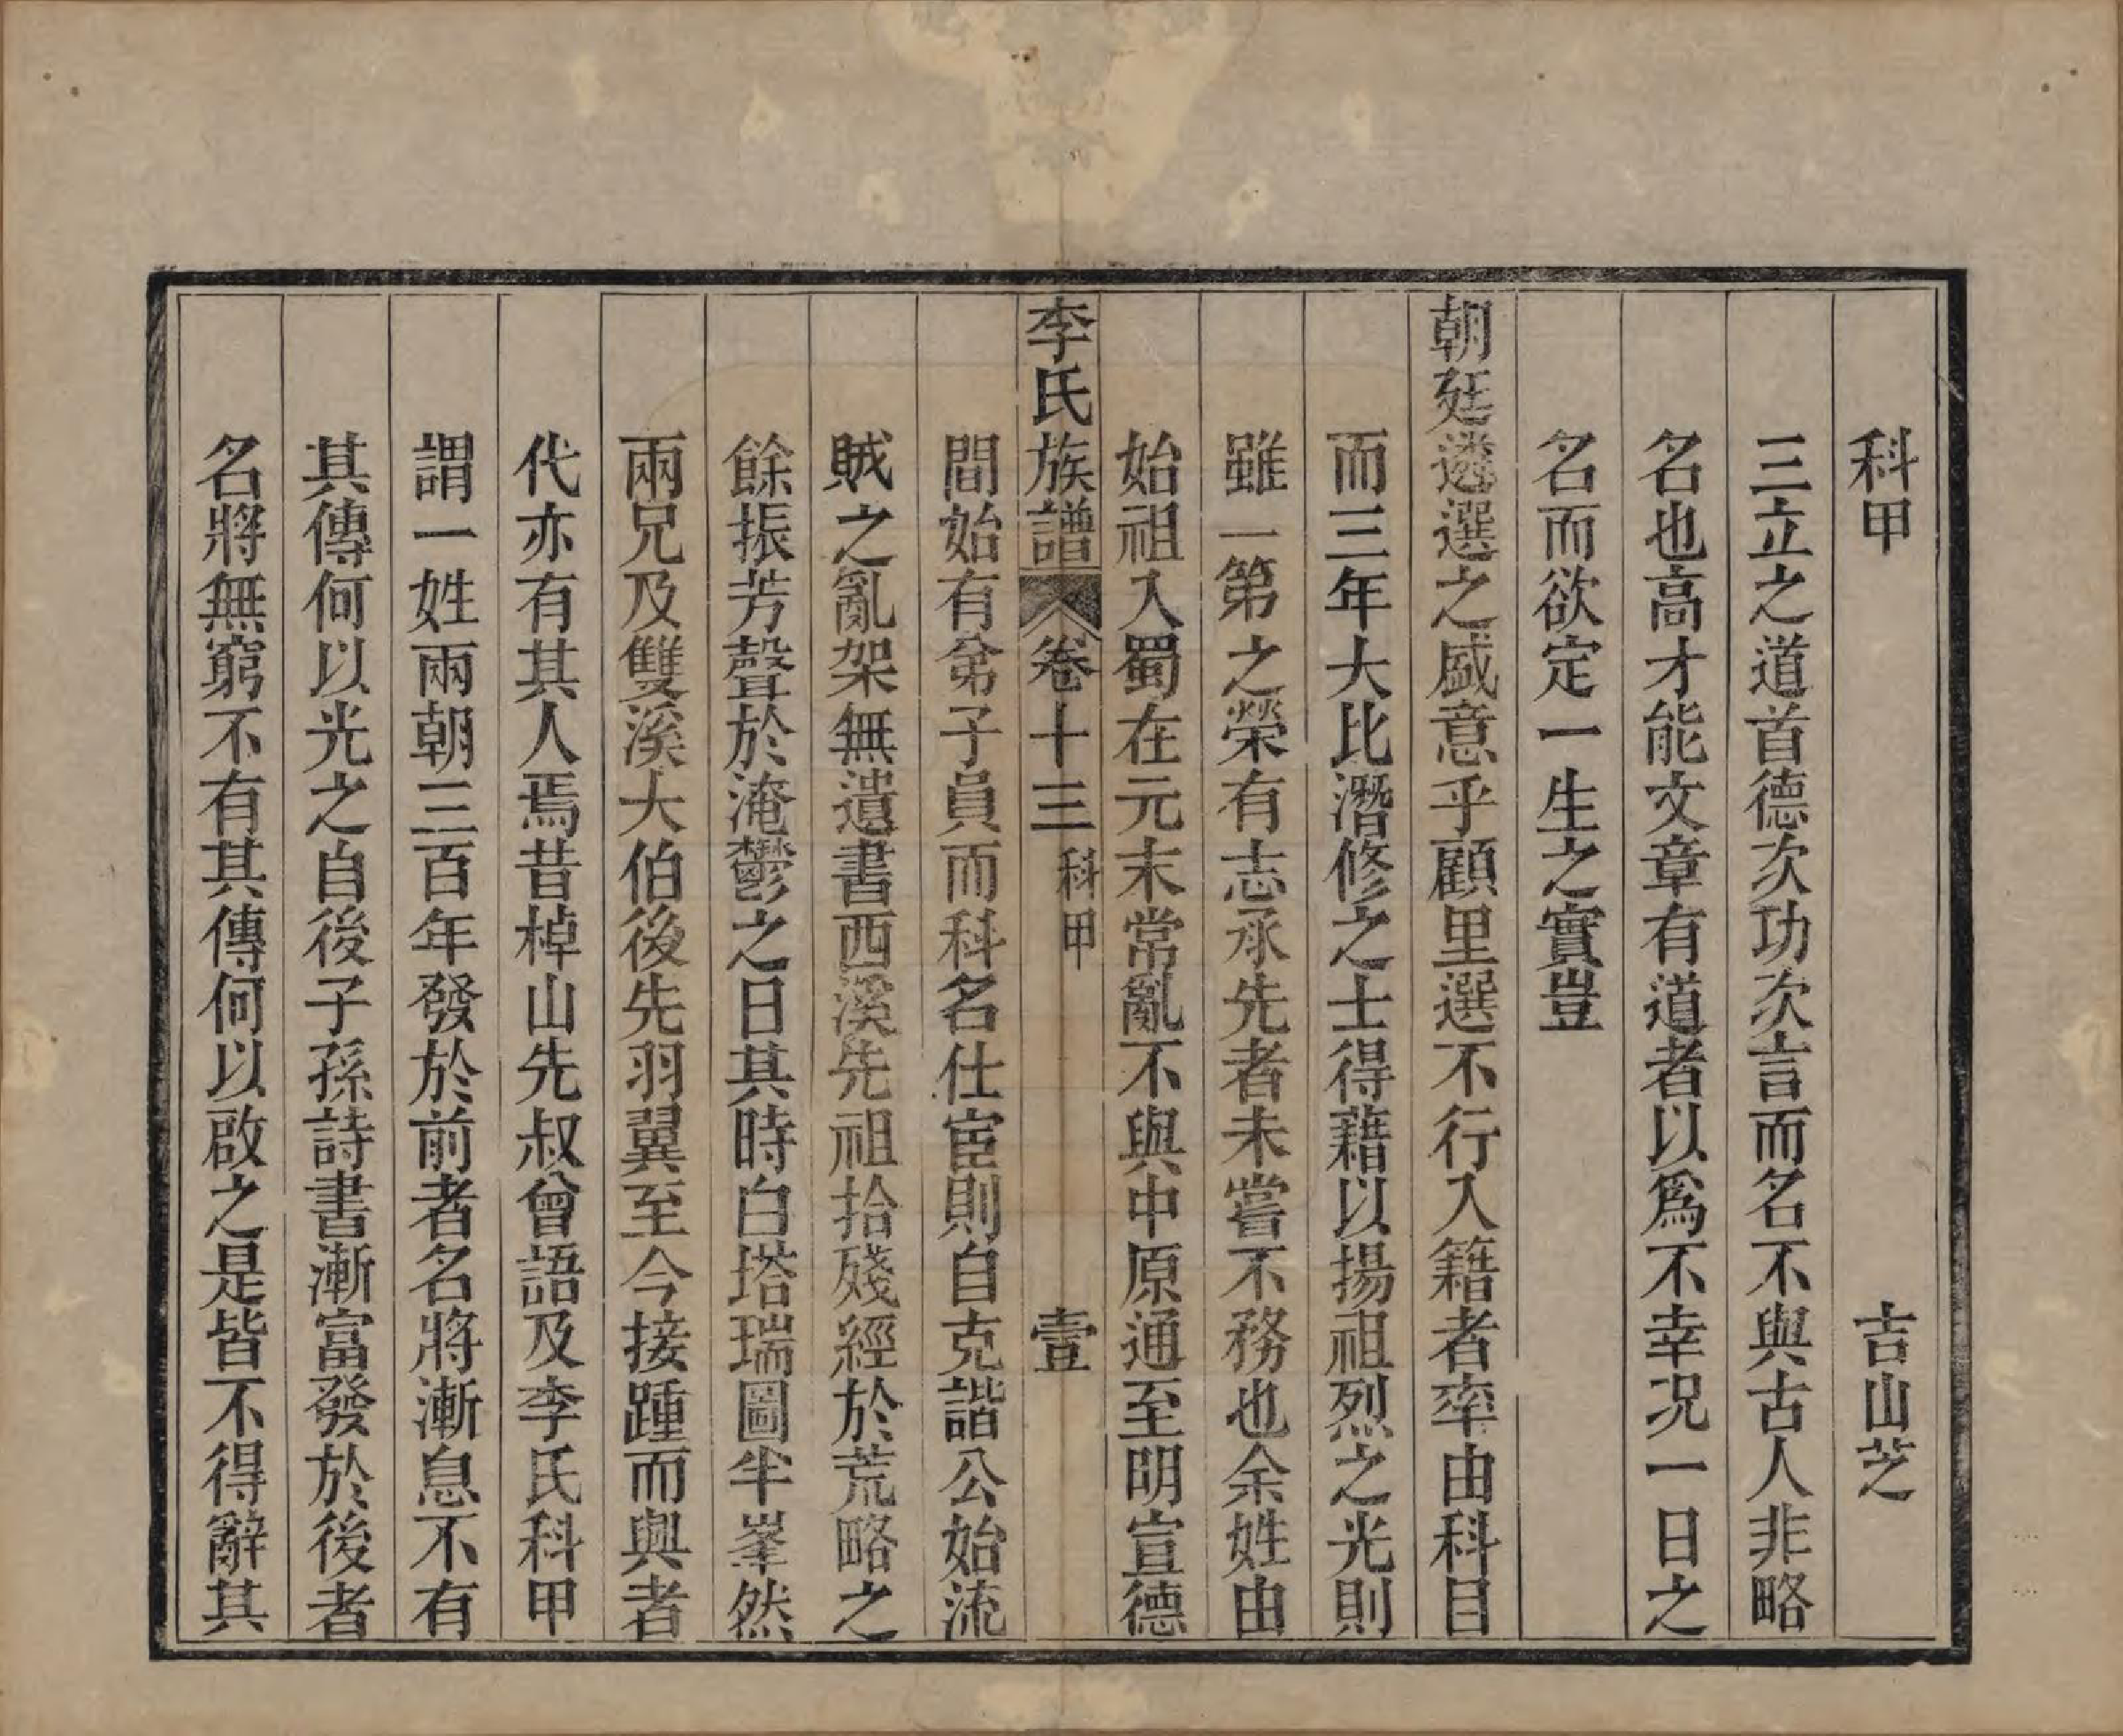 科甲　吉山芝
三立之道首德次功次言而名不與古人非略
名也高才能文章有道者以爲不幸况一日之
名而欲定一生之實豈
朝廷遴選之盛意乎顧里選不行入籍者率由科目
而三年大比潛修之士得藉以揚祖烈之光則
雖一第之榮有志承先者未嘗不務也余姓由
始祖入蜀在元末常亂不與中原通至明宣德
李氏族譜　卷十三　科甲　壹
間始有弟子員而科名仕宦則自克諧公始流
賊之亂架無遺書西溪先祖拾殘經於荒略之
餘振芳聲於淹鬱之日其時白塔瑞圖半峯然
兩兄及雙溪大伯後先羽翼至今接踵而興者
代亦有其人焉昔棹山先叔曾語及李氏科甲
謂一姓兩朝三百年發於前者名將漸息不有
其傳何以光之自後子孫詩書漸富發於後者
名將無窮不有其傳何以啟之是皆不得辭其